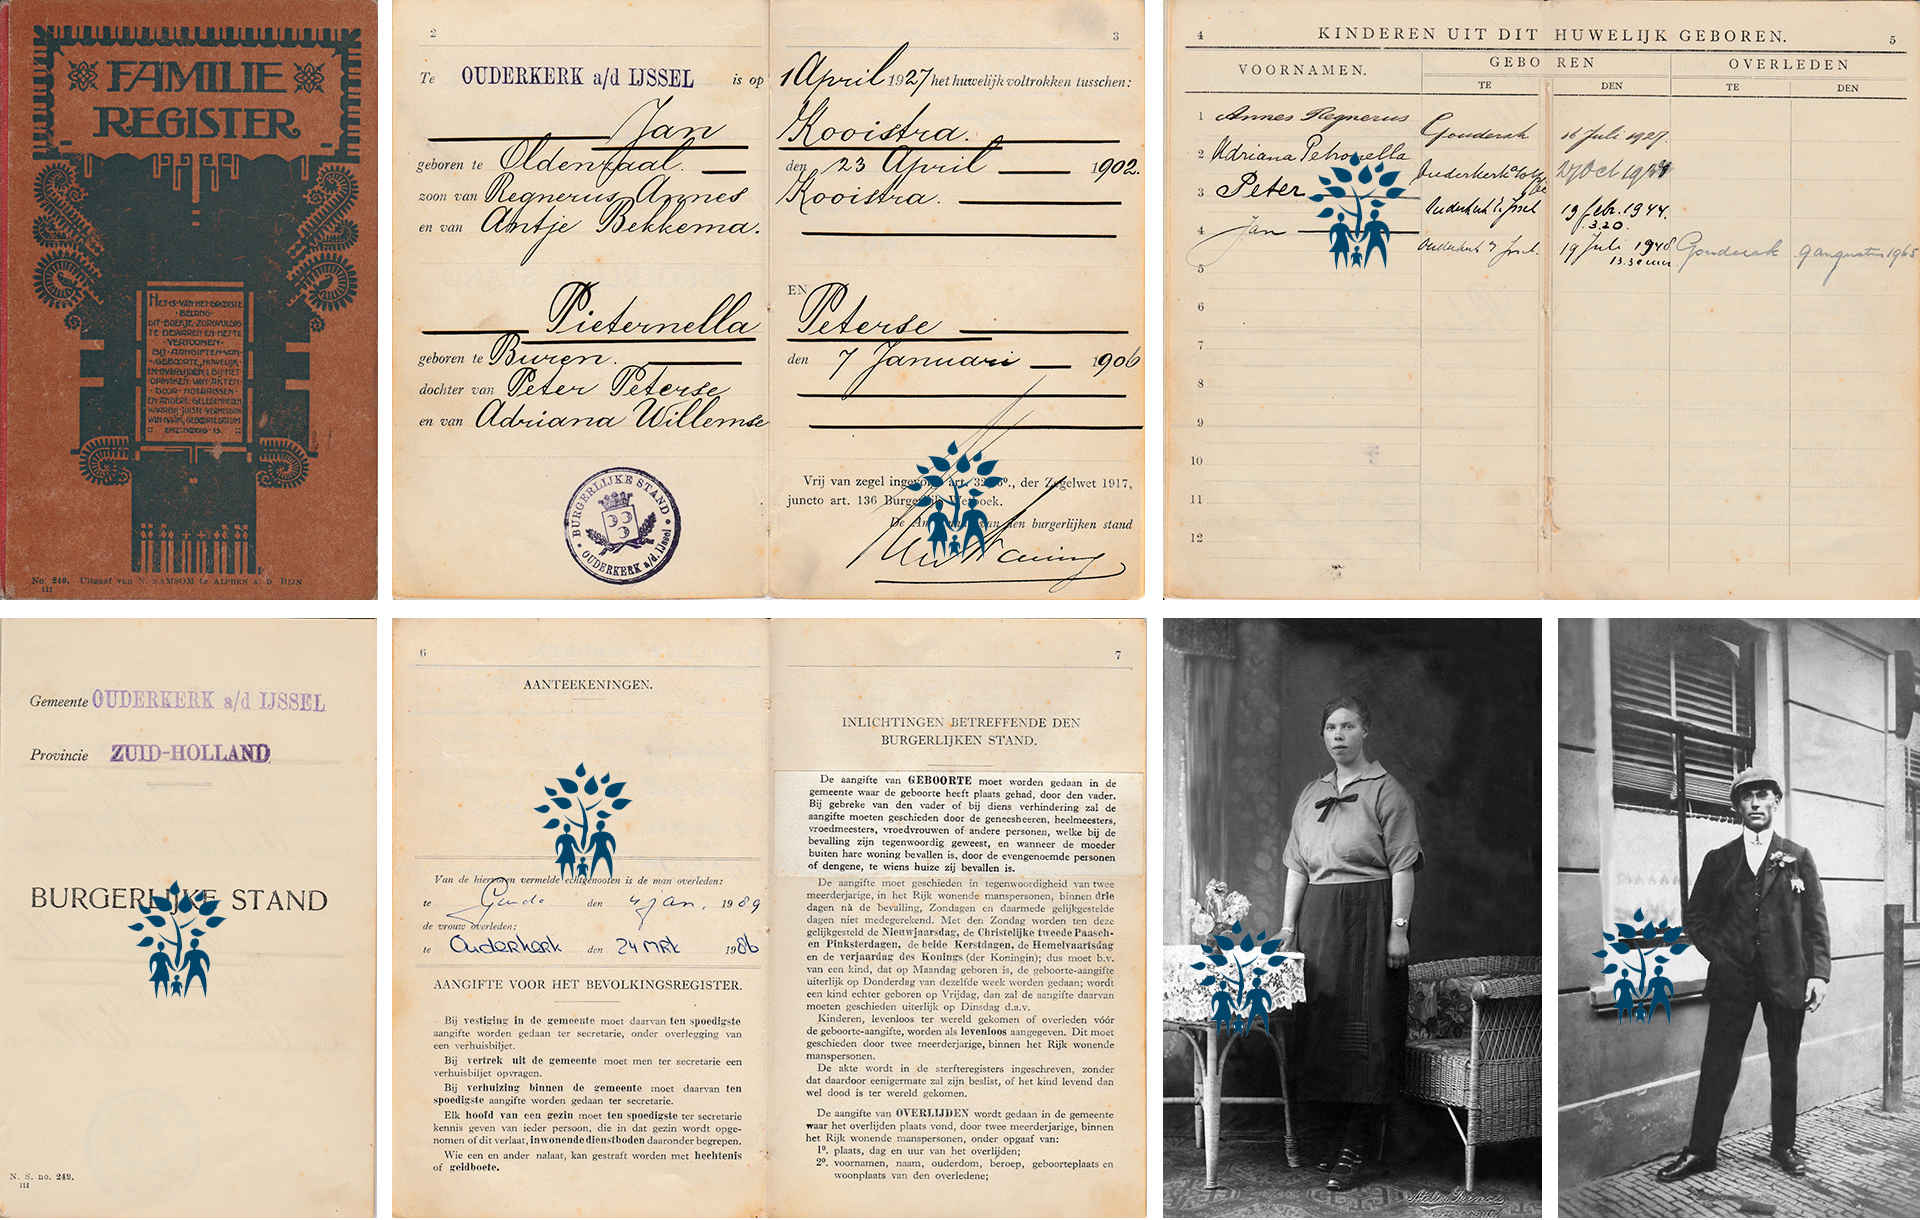 FAMILIE
REGISTER
HET·IS·VAN·HET·GROOTSTE
·BELANG·
DIT·BOEKJE·ZORGVULDIG
TE·BEWAREN·EN·HET·TE
·VERTOONEN·
BIJ·AANGIFTEN·VAN
·GEBOORTE, HUWELIJK·
EN·OVERLIJDEN; BIJ·HET
OPMAKEN·VAN·AKTEN
·DOOR·NOTARISSEN·
EN·ANDERE·GELEGENHEDEN
WAARBIJ·JUISTE·VERMELDING
VAN·NAAM, GEBOORTEDATUM
ENZ·NOODIG·IS.
No. 249. Uitgaaf van N. SAMSOM te ALPHEN a. d. RIJN
III
2
Te OUDERKERK a/d IJSSEL is op
Jan
geboren te Oldenzaal.
zoon van Regnerus Annes
en van Antje Bekkema.
Pieternella
geboren te Buren.
dochter van Peter Peterse
en van Adriana Willemse
BURGERLIJKE STAND
OUDERKERK a/d. IJssel
3
1 April 1927 het huwelijk voltrokken tusschen:
Kooistra.
den 23 April 1902.
Kooistra.
EN
Peterse
den 7 Januari 1906
Vrij van zegel ingevolge art. 32, der Zegelwet 1917,
juncto art. 136 Burgerlijk Wetboek.
De Ambtenaar van den burgerlijken stand
4 KINDEREN UIT DIT HUWELIJK GEBOREN. 5
VOORNAMEN. GEBOREN OVERLEDEN
TE DEN TE DEN
1 Annes Regnerus Gouderak 16 Juli 1927.
2 Adriana Petronella Ouderkerk a/d 27 Oct
3 Peter Ouderkerk a/d IJssel 19 febr. 1944.
3.20.
4 Jan Ouderkerk a/d IJssel. 19 Juli 1948 Gouderak 9 augustus 1965
13.30 uur
5
6
7
8
9
10
11
12
Gemeente OUDERKERK a/d IJSSEL
Provincie ZUID-HOLLAND
BURGERLIJKE STAND
N. S. no. 249.
III
6
AANTEEKENINGEN.
Van de hiervoren vermelde echtgenooten is de man overleden:
te Gouda den 4 jan. 1989
de vrouw overleden:
te Ouderkerk den 24 MRT 1986
AANGIFTE VOOR HET BEVOLKINGSREGISTER.
Bij vestiging in de gemeente moet daarvan ten spoedigste
aangifte worden gedaan ter secretarie, onder overlegging van
een verhuisbiljet.
Bij vertrek uit de gemeente moet men ter secretarie een
verhuisbiljet opvragen.
Bij verhuizing binnen de gemeente moet daarvan ten
spoedigste aangifte worden gedaan ter secretarie.
Elk hoofd van een gezin moet ten spoedigste ter secretarie
kennis geven van ieder persoon, die in dat gezin wordt opge-
nomen of dit verlaat, inwonende dienstboden daaronder begrepen.
Wie een en ander nalaat, kan gestraft worden met hechtenis
of geldboete.
7
INLICHTINGEN BETREFFENDE DEN
BURGERLIJKEN STAND.
De aangifte van GEBOORTE moet worden gedaan in de
gemeente waar de geboorte heeft plaats gehad, door den vader.
Bij gebreke van den vader of bij diens verhindering zal de
aangifte moeten geschieden door de geneesheeren, heelmeesters,
vroedmeesters, vroedvrouwen of andere personen, welke bij de
bevalling zijn tegenwoordig geweest, en wanneer de moeder
buiten hare woning bevallen is, door de evengenoemde personen
of dengene, te wiens huize zij bevallen is.
De aangifte moet geschieden in tegenwoordigheid van twee
meerderjarige, in het Rijk wonende manspersonen, binnen drie
dagen nà de bevalling, Zondagen en daarmede gelijkgestelde
dagen niet medegerekend. Met den Zondag worden ten deze
gelijkgesteld de Nieuwjaarsdag, de Christelijke tweede Paasch-
en Pinksterdagen, de beide Kerstdagen, de Hemelvaartsdag
en de verjaardag des Konings (der Koningin); dus moet b.v.
van een kind, dat op Maandag geboren is, de geboorte-aangifte
uiterlijk op Donderdag van dezelfde week worden gedaan; wordt
een kind echter geboren op Vrijdag, dan zal de aangifte daarvan
moeten geschieden uiterlijk op Dinsdag d.a.v.
Kinderen, levenloos ter wereld gekomen of overleden vóór
de geboorte-aangifte, worden als levenloos aangegeven. Dit moet
geschieden door twee meerderjarige, binnen het Rijk wonende
manspersonen.
De akte wordt in de sterfteregisters ingeschreven, zonder
dat daardoor eenigermate zal zijn beslist, of het kind levend dan
wel dood is ter wereld gekomen.
De aangifte van OVERLIJDEN wordt gedaan in de gemeente
waar het overlijden plaats vond, door twee meerderjarige, binnen
het Rijk wonende manspersonen, onder opgaaf van:
1º. plaats, dag en uur van het overlijden;
2º. voornamen, naam, ouderdom, beroep, geboorteplaats en
woonplaats van den overledene;